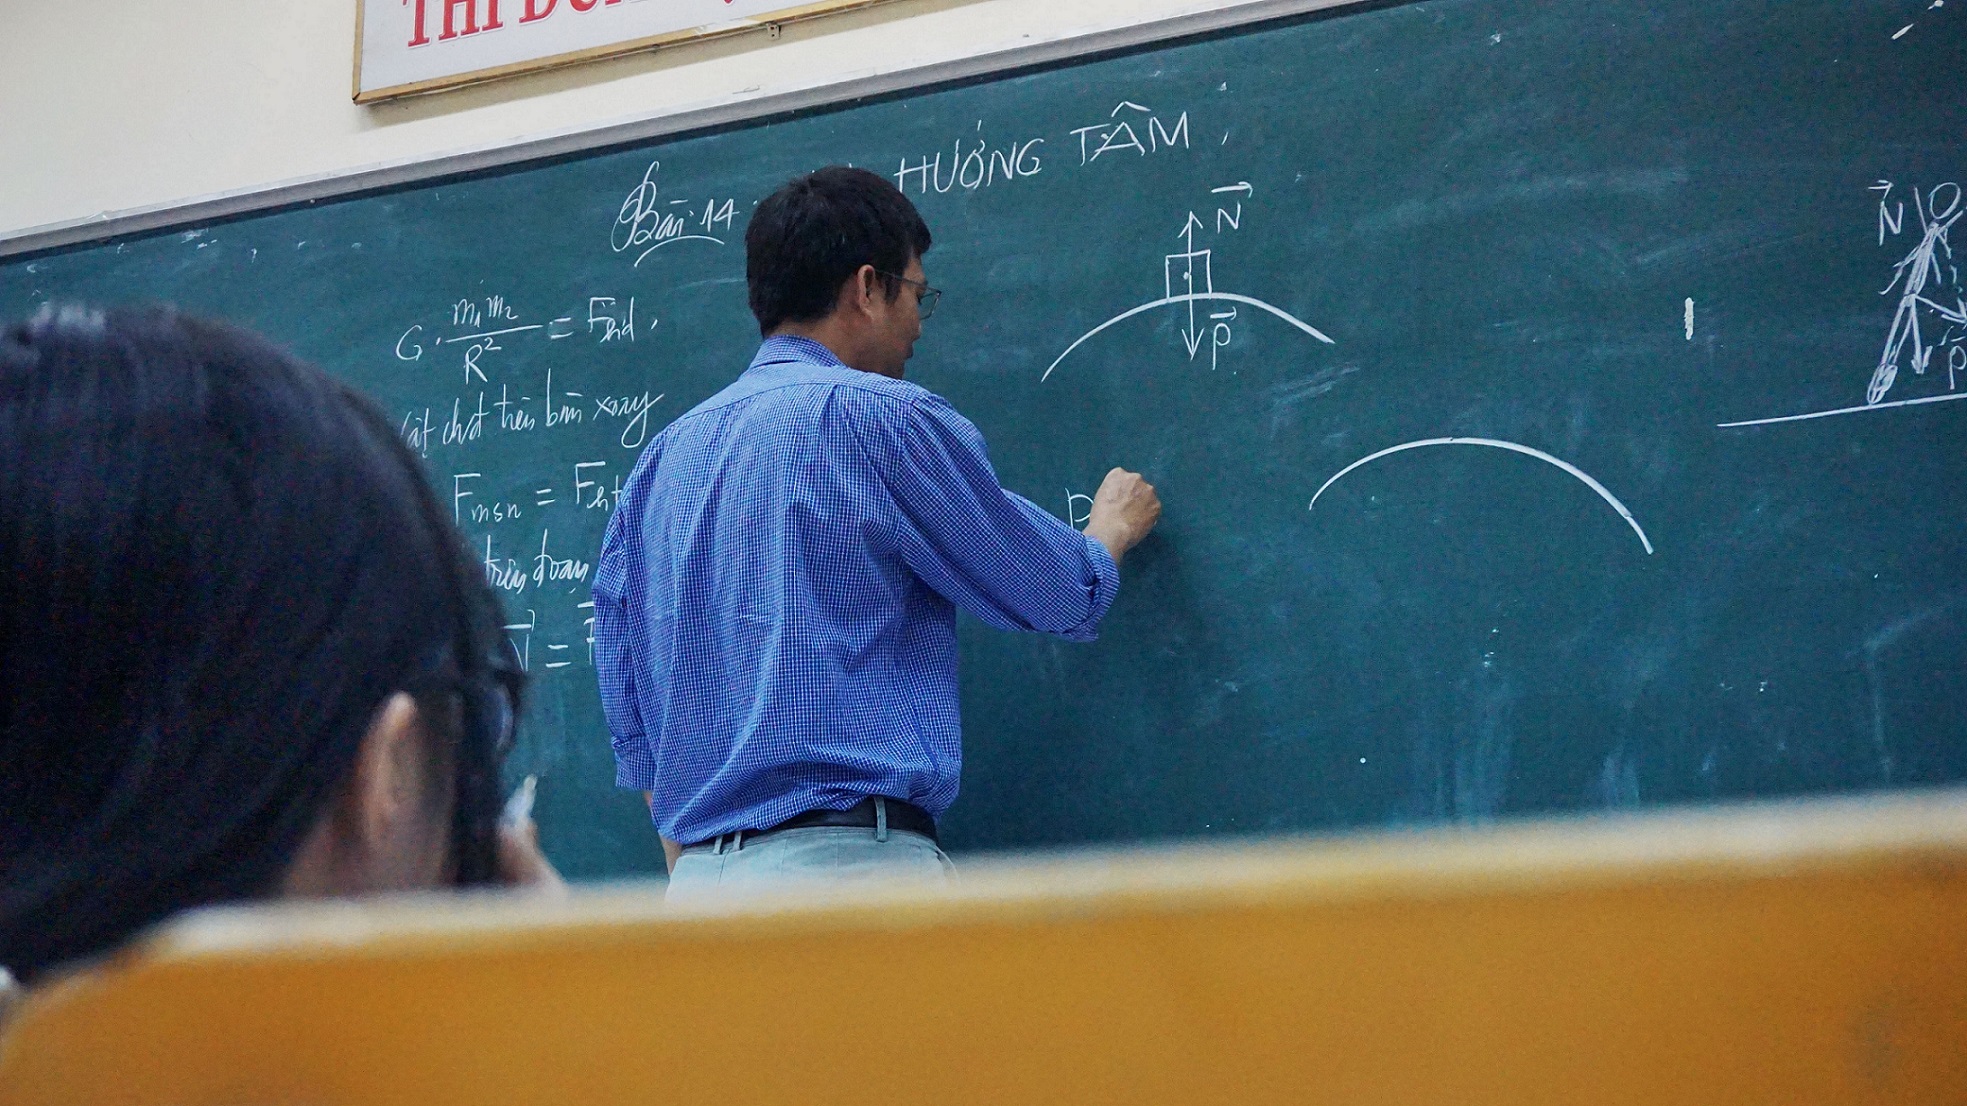 THI
Bài 14 HƯỚNG TÂM
G. m₁m₂/R² = Fhd
chđ trên bàn xoay
Fmsn = Fht
trên đoạn
N⃗ =
N⃗
P⃗
P
N⃗
P⃗